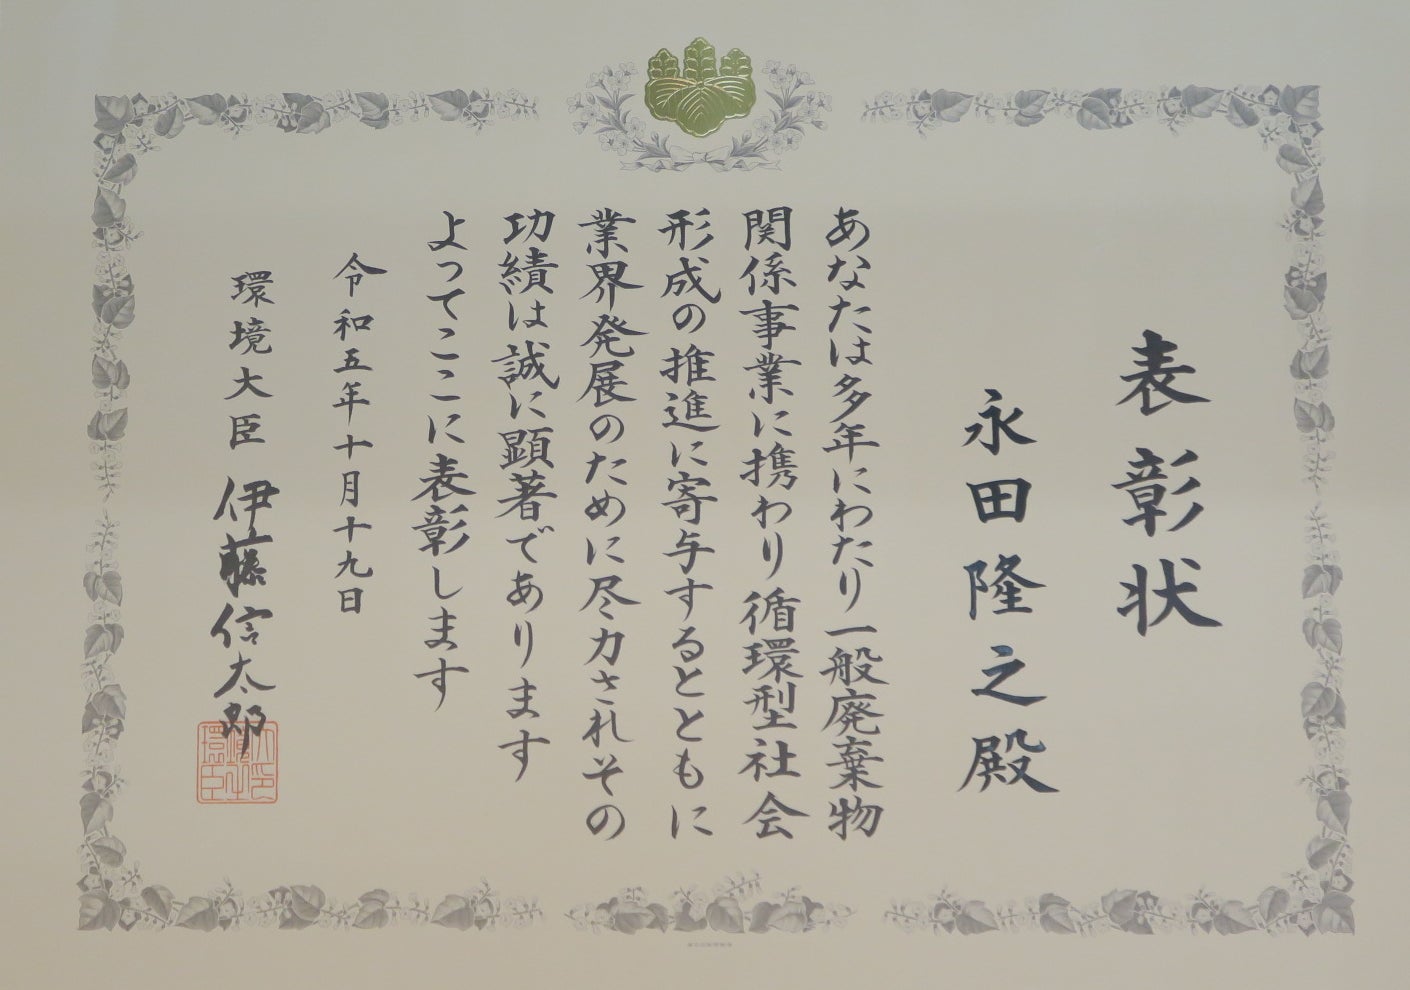 表彰状
永田隆之殿
あなたは多年にわたり一般廃棄物
関係事業に携わり循環型社会
形成の推進に寄与するとともに
業界発展のために尽力されその
功績は誠に顕著であります
よってここに表彰します
令和五年十月十九日
環境大臣 伊藤信太郎